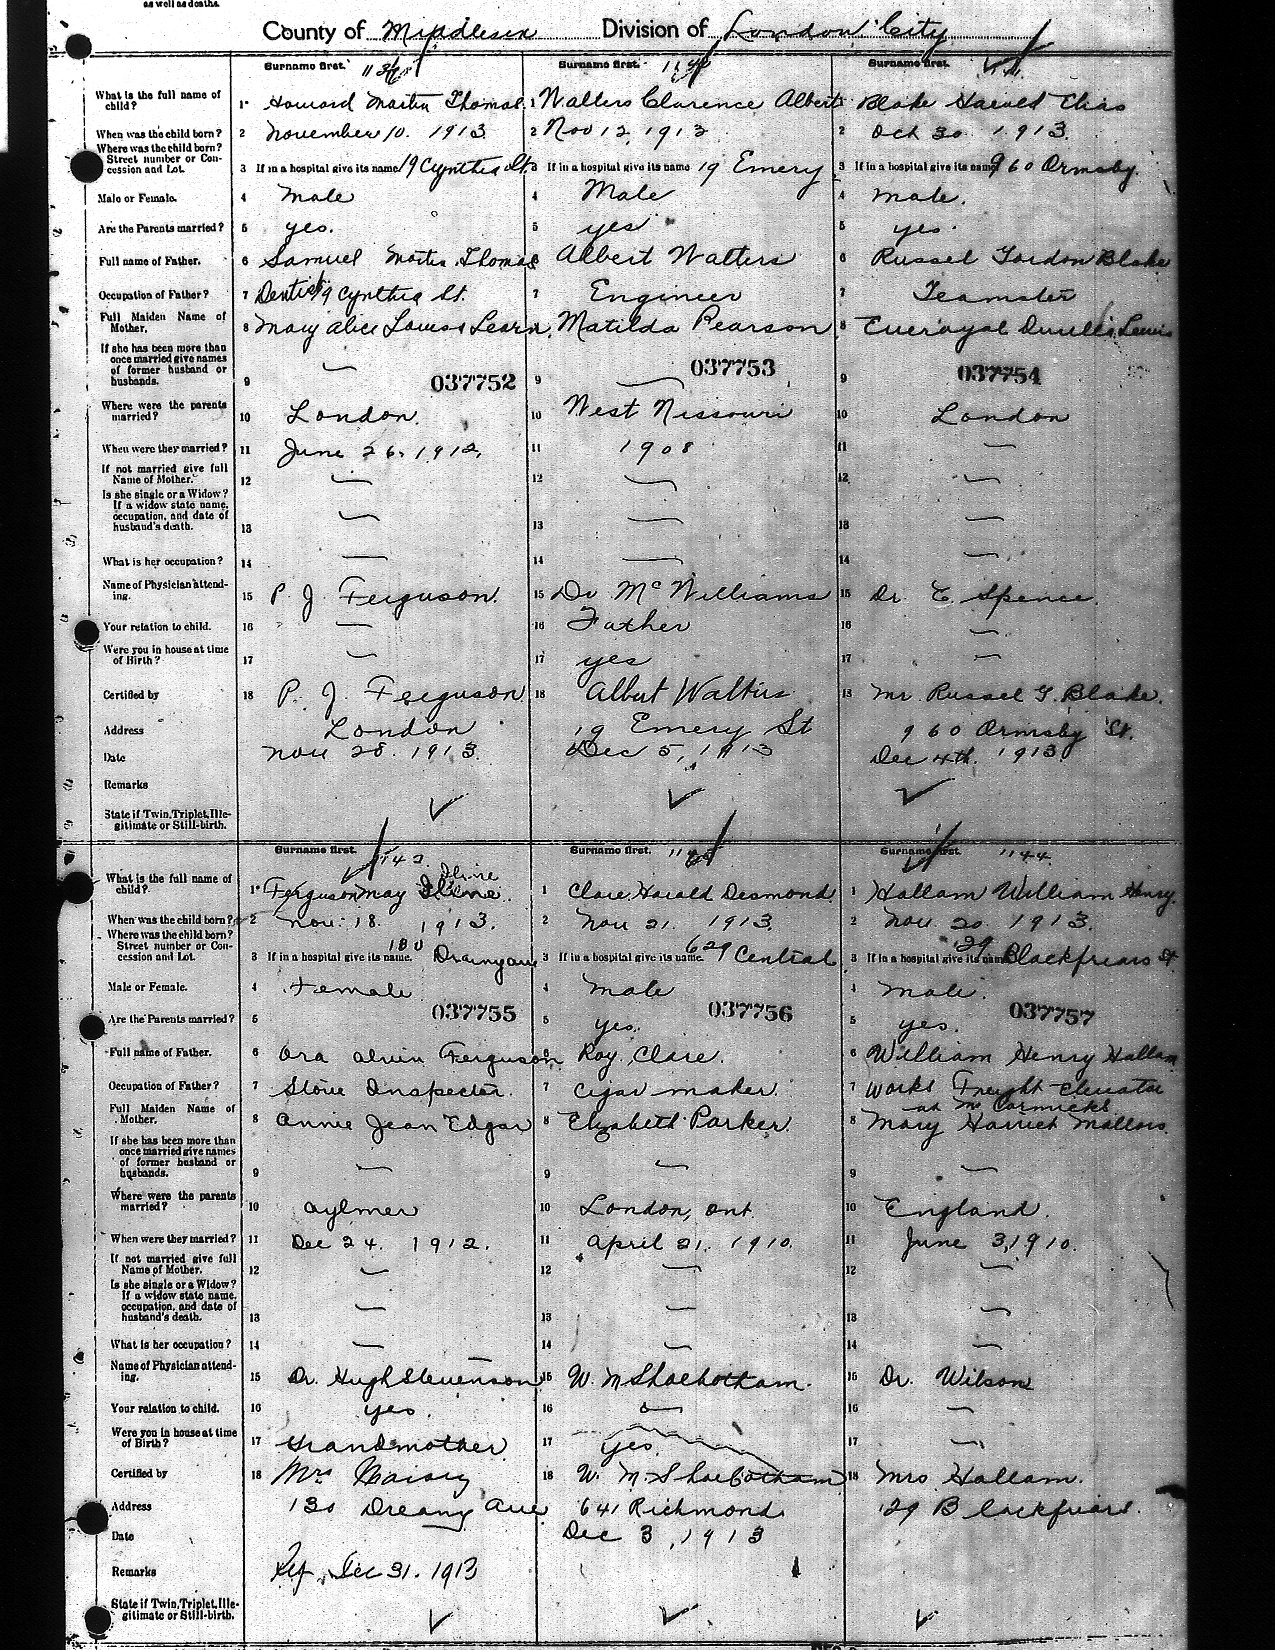 as well as deaths.
County of Middlesex Division of London City
Surname first. Surname first. Surname first.
What is the full name of child? 1 Howard Martin Thomas 1 Walters Clarence Albert 1 Blake Harold Elias
When was the child born? 2 November 10. 1913 2 Nov 12, 1913 2 Oct 30 1913.
Where was the child born? Street number or Concession and Lot. 3 If in a hospital give its name 19 Cynthia St. 3 If in a hospital give its name 19 Emery 3 If in a hospital give its name 960 Ormsby.
Male or Female. 4 male 4 Male 4 male.
Are the Parents married? 5 yes. 5 yes 5 yes.
Full name of Father. 6 Samuel Martin Thomas 6 Albert Walters 6 Russel Gordon Blake
Occupation of Father? 7 Dentist 19 Cynthia St. 7 Engineer 7 Teamster
Full Maiden Name of Mother. 8 Mary Alice Louisa Learn 8 Matilda Pearson 8 Lewis
If she has been more than once married give names of former husband or husbands. 9 — 037752 9 — 037753 9 037754
Where were the parents married? 10 London. 10 West Nissouri 10 London
When were they married? 11 June 26, 1912, 11 1908 11 —
If not married give full Name of Mother. 12 — 12 — 12 —
Is she single or a Widow? If a widow state name, occupation, and date of husband's death. 13 — 13 — 13 —
What is her occupation? 14 — 14 — 14 —
Name of Physician attending. 15 P. J. Ferguson. 15 Dr McWilliams 15 Dr. E Spence.
Your relation to child. 16 — 16 Father 16 —
Were you in house at time of Birth? 17 — 17 yes 17 —
Certified by 18 P. J. Ferguson 18 Albert Walters 18 Mr Russel G. Blake.
Address London 19 Emery St 960 Ormsby St.
Date Nov 28. 1913. Dec 5, 1913 Dec 4th. 1913.
Remarks
State if Twin, Triplet, Illegitimate or Still-birth.
Surname first. 1142 Surname first. Surname first. 1144
What is the full name of child? 1 Ferguson May Ilene 1 Clare Harald Desmond 1 Hallam William Henry.
When was the child born? 2 Nov. 18. 1913. 2 Nov 21. 1913. 2 Nov. 20 1913.
Where was the child born? Street number or Concession and Lot. 3 If in a hospital give its name. 180 3 If in a hospital give its name. 629 Central 3 If in a hospital give its name 29 Blackfriars St
Male or Female. 4 Female 4 male 4 male.
Are the Parents married? 5 037755 5 yes. 037756 5 yes. 037757
Full name of Father. 6 Ora Alvin Ferguson 6 Roy. Clare. 6 William Henry Hallam
Occupation of Father? 7 Stove Inspector. 7 Cigar maker. 7 works Freight Elevator at McCormicks
Full Maiden Name of Mother. 8 Annie Jean Edgar 8 Elizabeth Parker. 8 Mary Harriet
If she has been more than once married give names of former husband or husbands. 9 — 9 — 9 —
Where were the parents married? 10 Aylmer 10 London, Ont 10 England.
When were they married? 11 Dec 24. 1912. 11 April 21. 1910. 11 June 3, 1910.
If not married give full Name of Mother. 12 — 12 — 12 —
Is she single or a Widow? If a widow state name, occupation, and date of husband's death. 13 — 13 — 13 —
What is her occupation? 14 — 14 — 14 —
Name of Physician attending. 15 Dr. Hugh Stevenson 15 W. M Shoebotham. 15 Dr. Wilson
Your relation to child. 16 yes. 16 — 16 —
Were you in house at time of Birth? 17 Grandmother 17 yes. 17 —
Certified by 18 Mrs 18 W. M. Shoebotham 18 Mrs Hallam.
Address 130 Ave 641 Richmond 29 Blackfriars.
Date Dec 3, 1913
Remarks Dec 31. 1913
State if Twin, Triplet, Illegitimate or Still-birth.